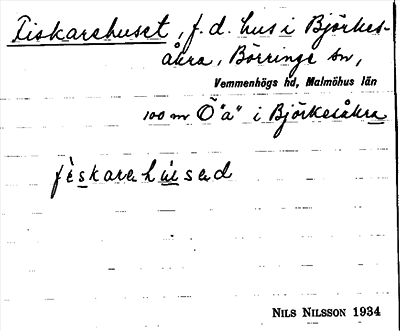 Fiskarehuset, f. d. hus i Björkes-
åkra, Börringe sn,
Vemmenhögs hd, Malmöhus län
100 m Ö "a" i Björkesåkra
fiskarehúsed
Nils Nilsson 1934